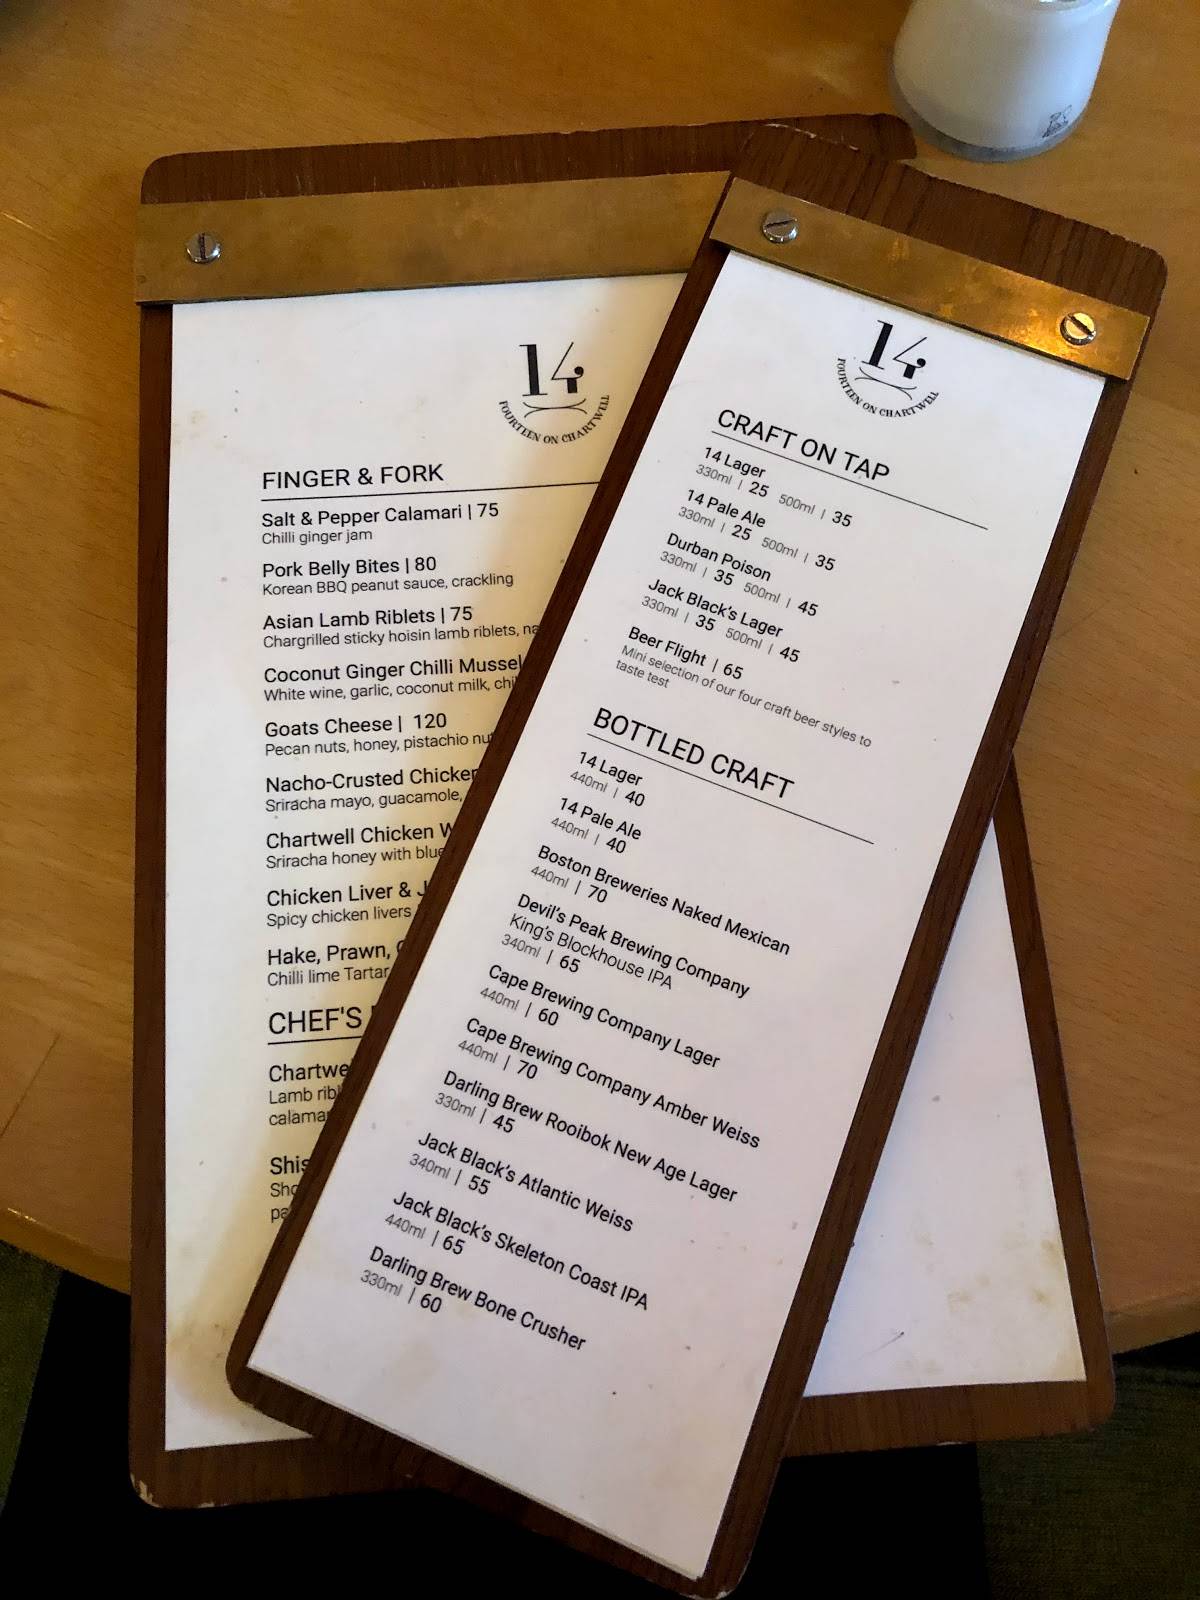 14
FOURTEEN ON CHARTWELL
FINGER & FORK
Salt & Pepper Calamari | 75
Chilli ginger jam
Pork Belly Bites | 80
Korean BBQ peanut sauce, crackling
Asian Lamb Riblets | 75
Chargrilled sticky hoisin lamb riblets,
Coconut Ginger Chilli
White wine, garlic, coconut milk,
Goats Cheese | 120
Pecan nuts, honey, pistachio
Nacho-Crusted Chicken
Sriracha mayo, guacamole,
Chartwell Chicken
Sriracha honey with blue
Chicken Liver &
Spicy chicken livers
Hake, Prawn,
Chilli lime Tartar
CHEF'S
Lamb
14
FOURTEEN ON CHARTWELL
CRAFT ON TAP
14 Lager
330ml | 25 500ml | 35
14 Pale Ale
330ml | 25 500ml | 35
Durban Poison
330ml | 35 500ml | 45
Jack Black's Lager
330ml | 35 500ml | 45
Beer Flight | 65
Mini selection of our four craft beer styles to
taste test
BOTTLED CRAFT
14 Lager
440ml | 40
14 Pale Ale
440ml | 40
Boston Breweries Naked Mexican
440ml | 70
Devil's Peak Brewing Company
King's Blockhouse IPA
340ml | 65
Cape Brewing Company Lager
440ml | 60
Cape Brewing Company Amber Weiss
440ml | 70
Darling Brew Rooibok New Age Lager
330ml | 45
Jack Black's Atlantic Weiss
340ml | 55
Jack Black's Skeleton Coast IPA
440ml | 65
Darling Brew Bone Crusher
330ml | 60